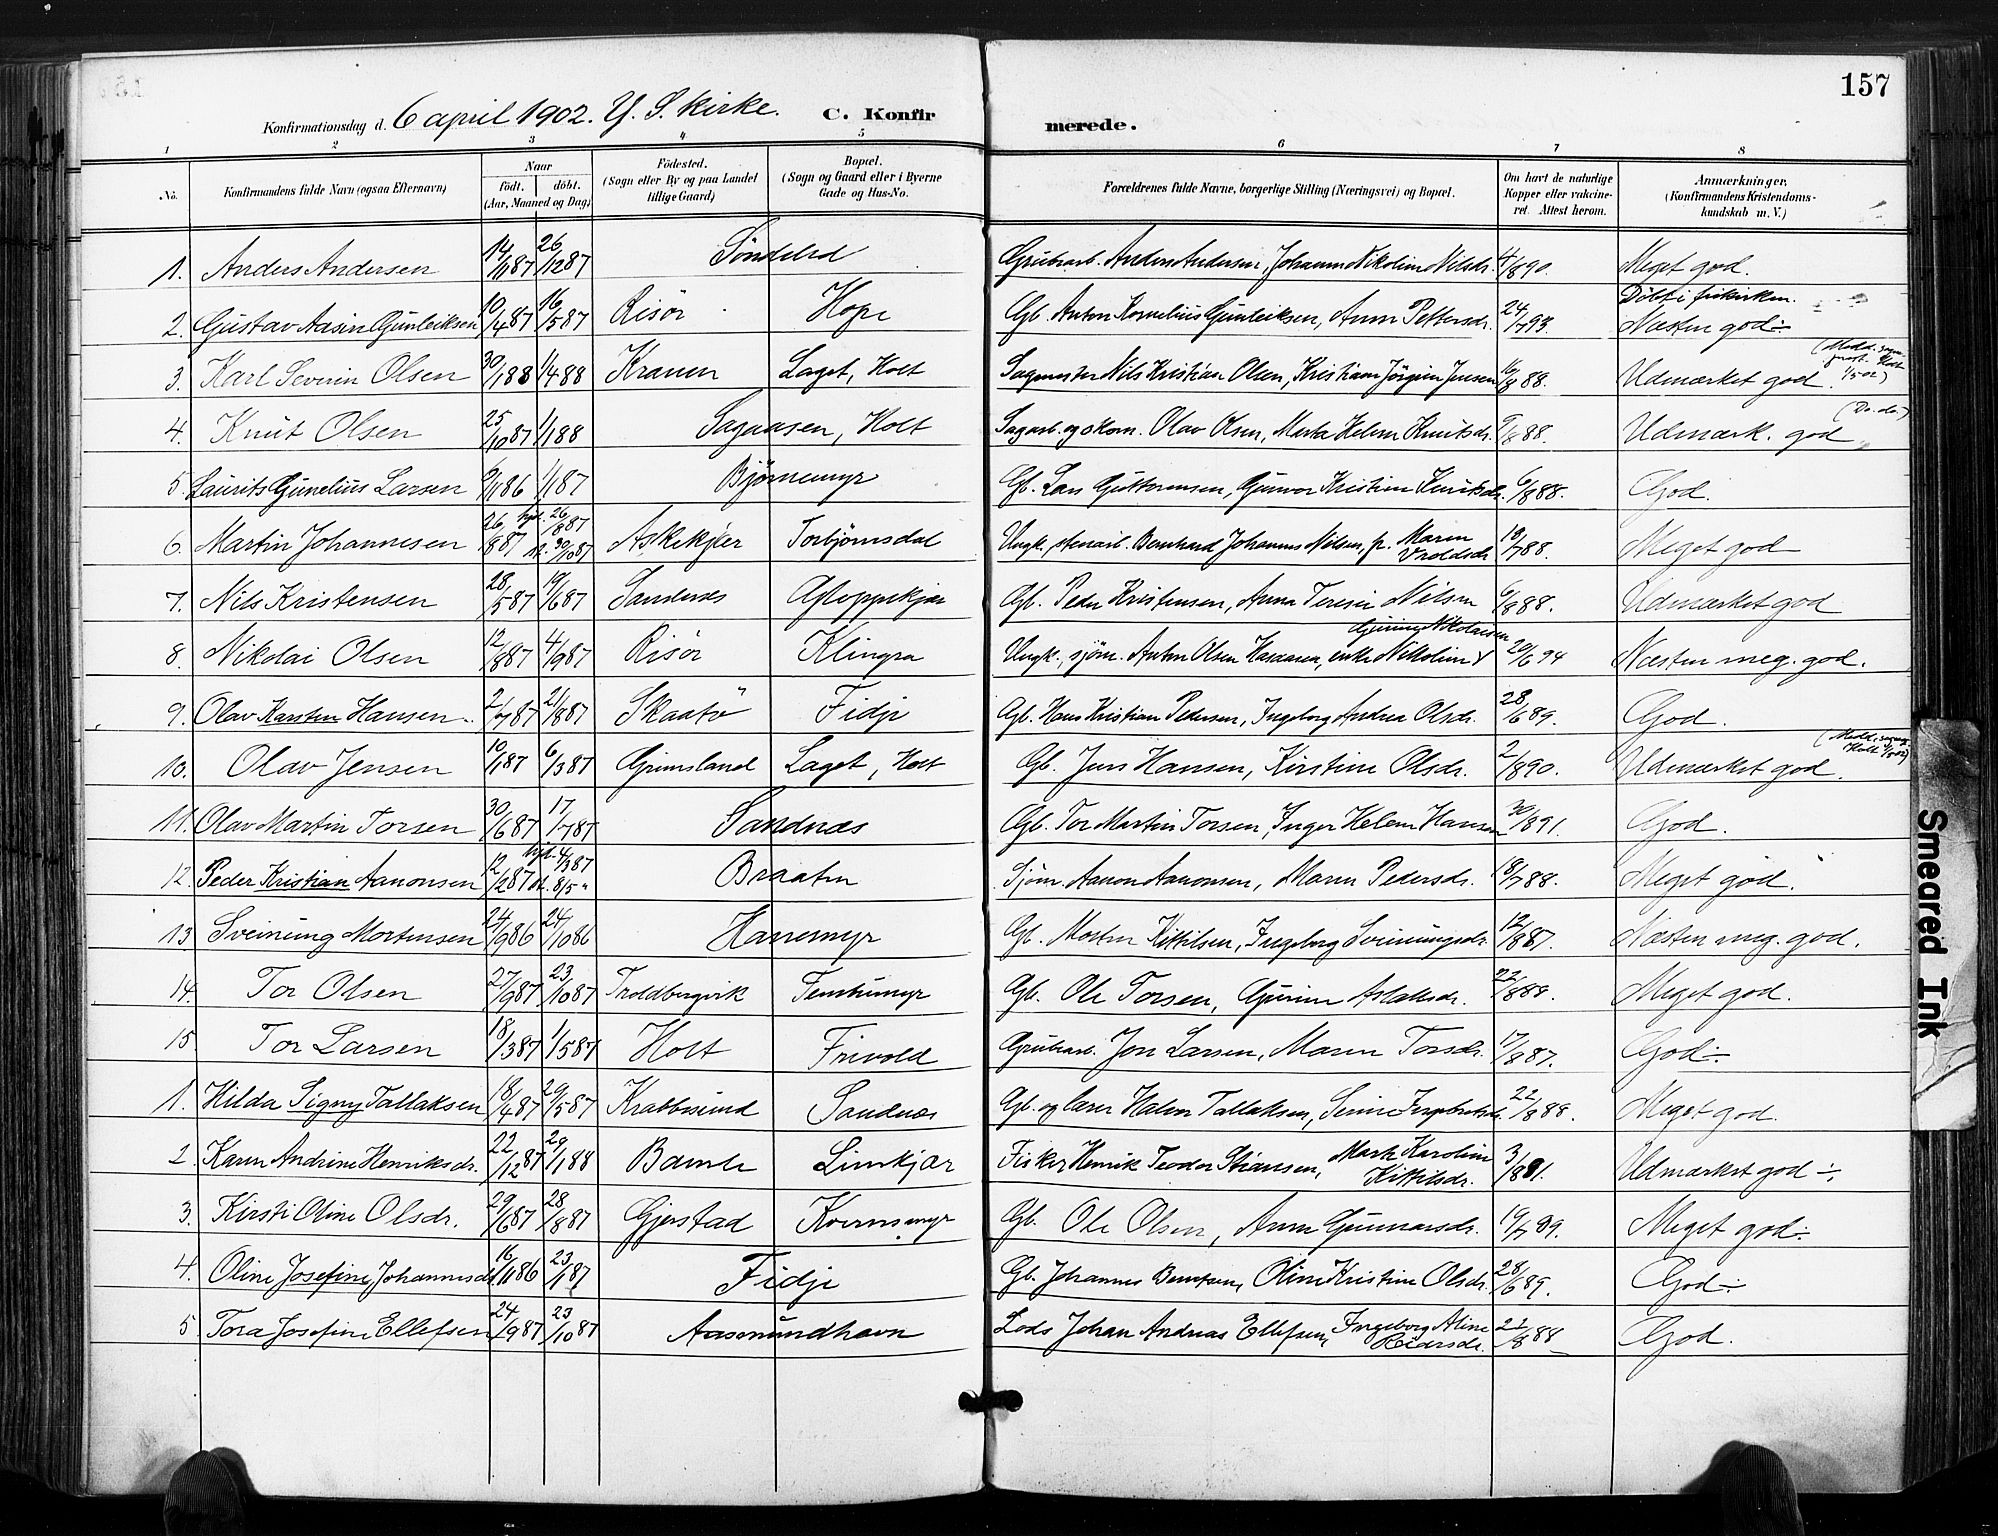 157
Konfirmationsdag d. 6 april 1902. Y. S. kirke. C. Konfirmerede.
1 2 3 4 5 6 7 8
No. Konfirmandens fulde Navn (ogsaa Efternavn) Naar födt. döbt. (Aar, Maaned og Dag) Födested. (Sogn eller By og paa Landet tillige Gaard) Bopæl. (Sogn og Gaard eller i Byerne Gade og Hus-No. Forældrenes fulde Navne, borgerlige Stilling (Næringsvei) og Bopæl. Om havt de naturlige Kopper eller vakcineret. Attest herom. Anmærkninger, (Konfirmandens Kristendomskundskab m. V.)
1. Anders Andersen 14/11 87 26/12 87 Söndelrd Grubearb. Anders Andersen, Johanne Nikoline Nilsdr. 4/8 90. Meget god.
2. Gustav Aasin Gunleiksen 10/4 87 16/5 87 Risör Hope Gb. Anton Kornelius Gunleiksen, Anne Pettersdr. 24/7 93. Döbt i frikirken. Næsten god ÷
3. Karl Severin Olsen 30/1 88 1/4 88 Kranen Laget, Holt Sagmester Nils Kristian Olsen, Kristiane Jörgine Jensen 16/8 88. Udmærket god. (Medd. sogneprest. Holt 1/5 02)
4. Knut Olsen 25/10 87 1/1 88 Sagaasen, Holt Sagarb. og skom. Olav Olsen, Marta Helene Knutsdr. 9/8 88. Udmærk. god (Do. do.)
5. Laurits Gunelius Larsen 9/11 86 1/1 87 Bjørnemyr Gb. Lars Guttormsen, Gunvor Kristine Knutsdr. 6/8 88. God.
6. Martin Johannesen 26/8 87 hjd. 26/8 87 st. 30/10 87 Askekjær Torbjörnsdal Ungk. stenarb. Bernhard Johannes Nilsen, p. Maren Vroldsdr. 18/7 88. Meget god
7. Nils Kristensen 28/5 87 19/6 87 Sandnes Gloppekjær Gb. Peder Kristensen, Anna Teresie Nilsen 6/8 88. Udmærket god
8. Nikolai Olsen 12/8 87 4/9 87 Risör Klingra Ungk. sjöm. Anton Olsen Hasaasen, enke Nikoline Gurine Nikolaisen 20/6 94 Næsten meg. god.
9. Olav Karsten Hansen 2/7 87 21/8 87 Skaatö Fidje Gb. Hans Kristian Pedersen, Ingeborg Andrea Olsdr. 28/6 89. God.
10. Olav Jensen 10/1 87 6/3 87 Grimsland Laget, Holt Gb. Jens Hansen, Kirstine Olsdr. 2/8 90. Udmærket god. (Medd. sognepr. Holt 1/5 02)
11. Olav Martin Torsen 30/6 87 17/7 87 Sandnæs Gb. Tor Martin Torsen, Inger Helene Hansen 30/8 91. God.
12. Peder Kristian Aanonsen 12/2 87 hjd. 4/3 87 st. 8/5 " Braaten Sjöm. Aanon Aanonsen, Maren Pedersdr. 18/7 88. Meget god.
13. Sveinung Mortensen 24/9 86 24/10 86 Hanemyr Gb. Morten Kittilsen, Ingeborg Sveinungsdr. 12/8 87. Næsten meg. god.
14. Tor Olsen 27/9 87 23/10 87 Troldbergvik Tenstumyr Gb. Ole Torsen, Gurine Aslaksdr. 22/8 88. Meget god.
15. Tor Larsen 18/3 87 1/5 87 Holt Frivold Grubearb. Jon Larsen, Maren Torsdr. 17/8 87. God ÷
1. Hilda Signy Tallaksen 18/4 87 29/5 87 Krabbesund Sandnæs Gb. og lærer Halvor Tallaksen, Serine Ingebretsdr. 22/8 88. Meget god.
2. Karen Andrine Henriksdr. 22/12 87 29/1 88 Bamle Limkjær Fisker Henrik Teodor Stiansen, Marte Karoline Kittilsdr. 3/8 91. Udmærket god ÷
3. Kirsti Oline Olsdr. 29/6 87 28/8 87 Gjerstad Kvernsmyr Gb. Ole Olsen, Anne Gunnarsdr. 19/7 89. Meget god ÷
4. Oline Josefine Johannesdr. 16/11 86 23/1 87 Fidje Gb. Johannes Bentsen, Oline Kristine Olsdr. 28/6 89. God ÷
5. Tora Josefine Ellefsen 24/9 87 23/10 87 Aasmundhavn Lods Johan Andreas Ellefsen, Ingeborg Aline Reiersdr. 21/8 88 God.
Smeared Ink